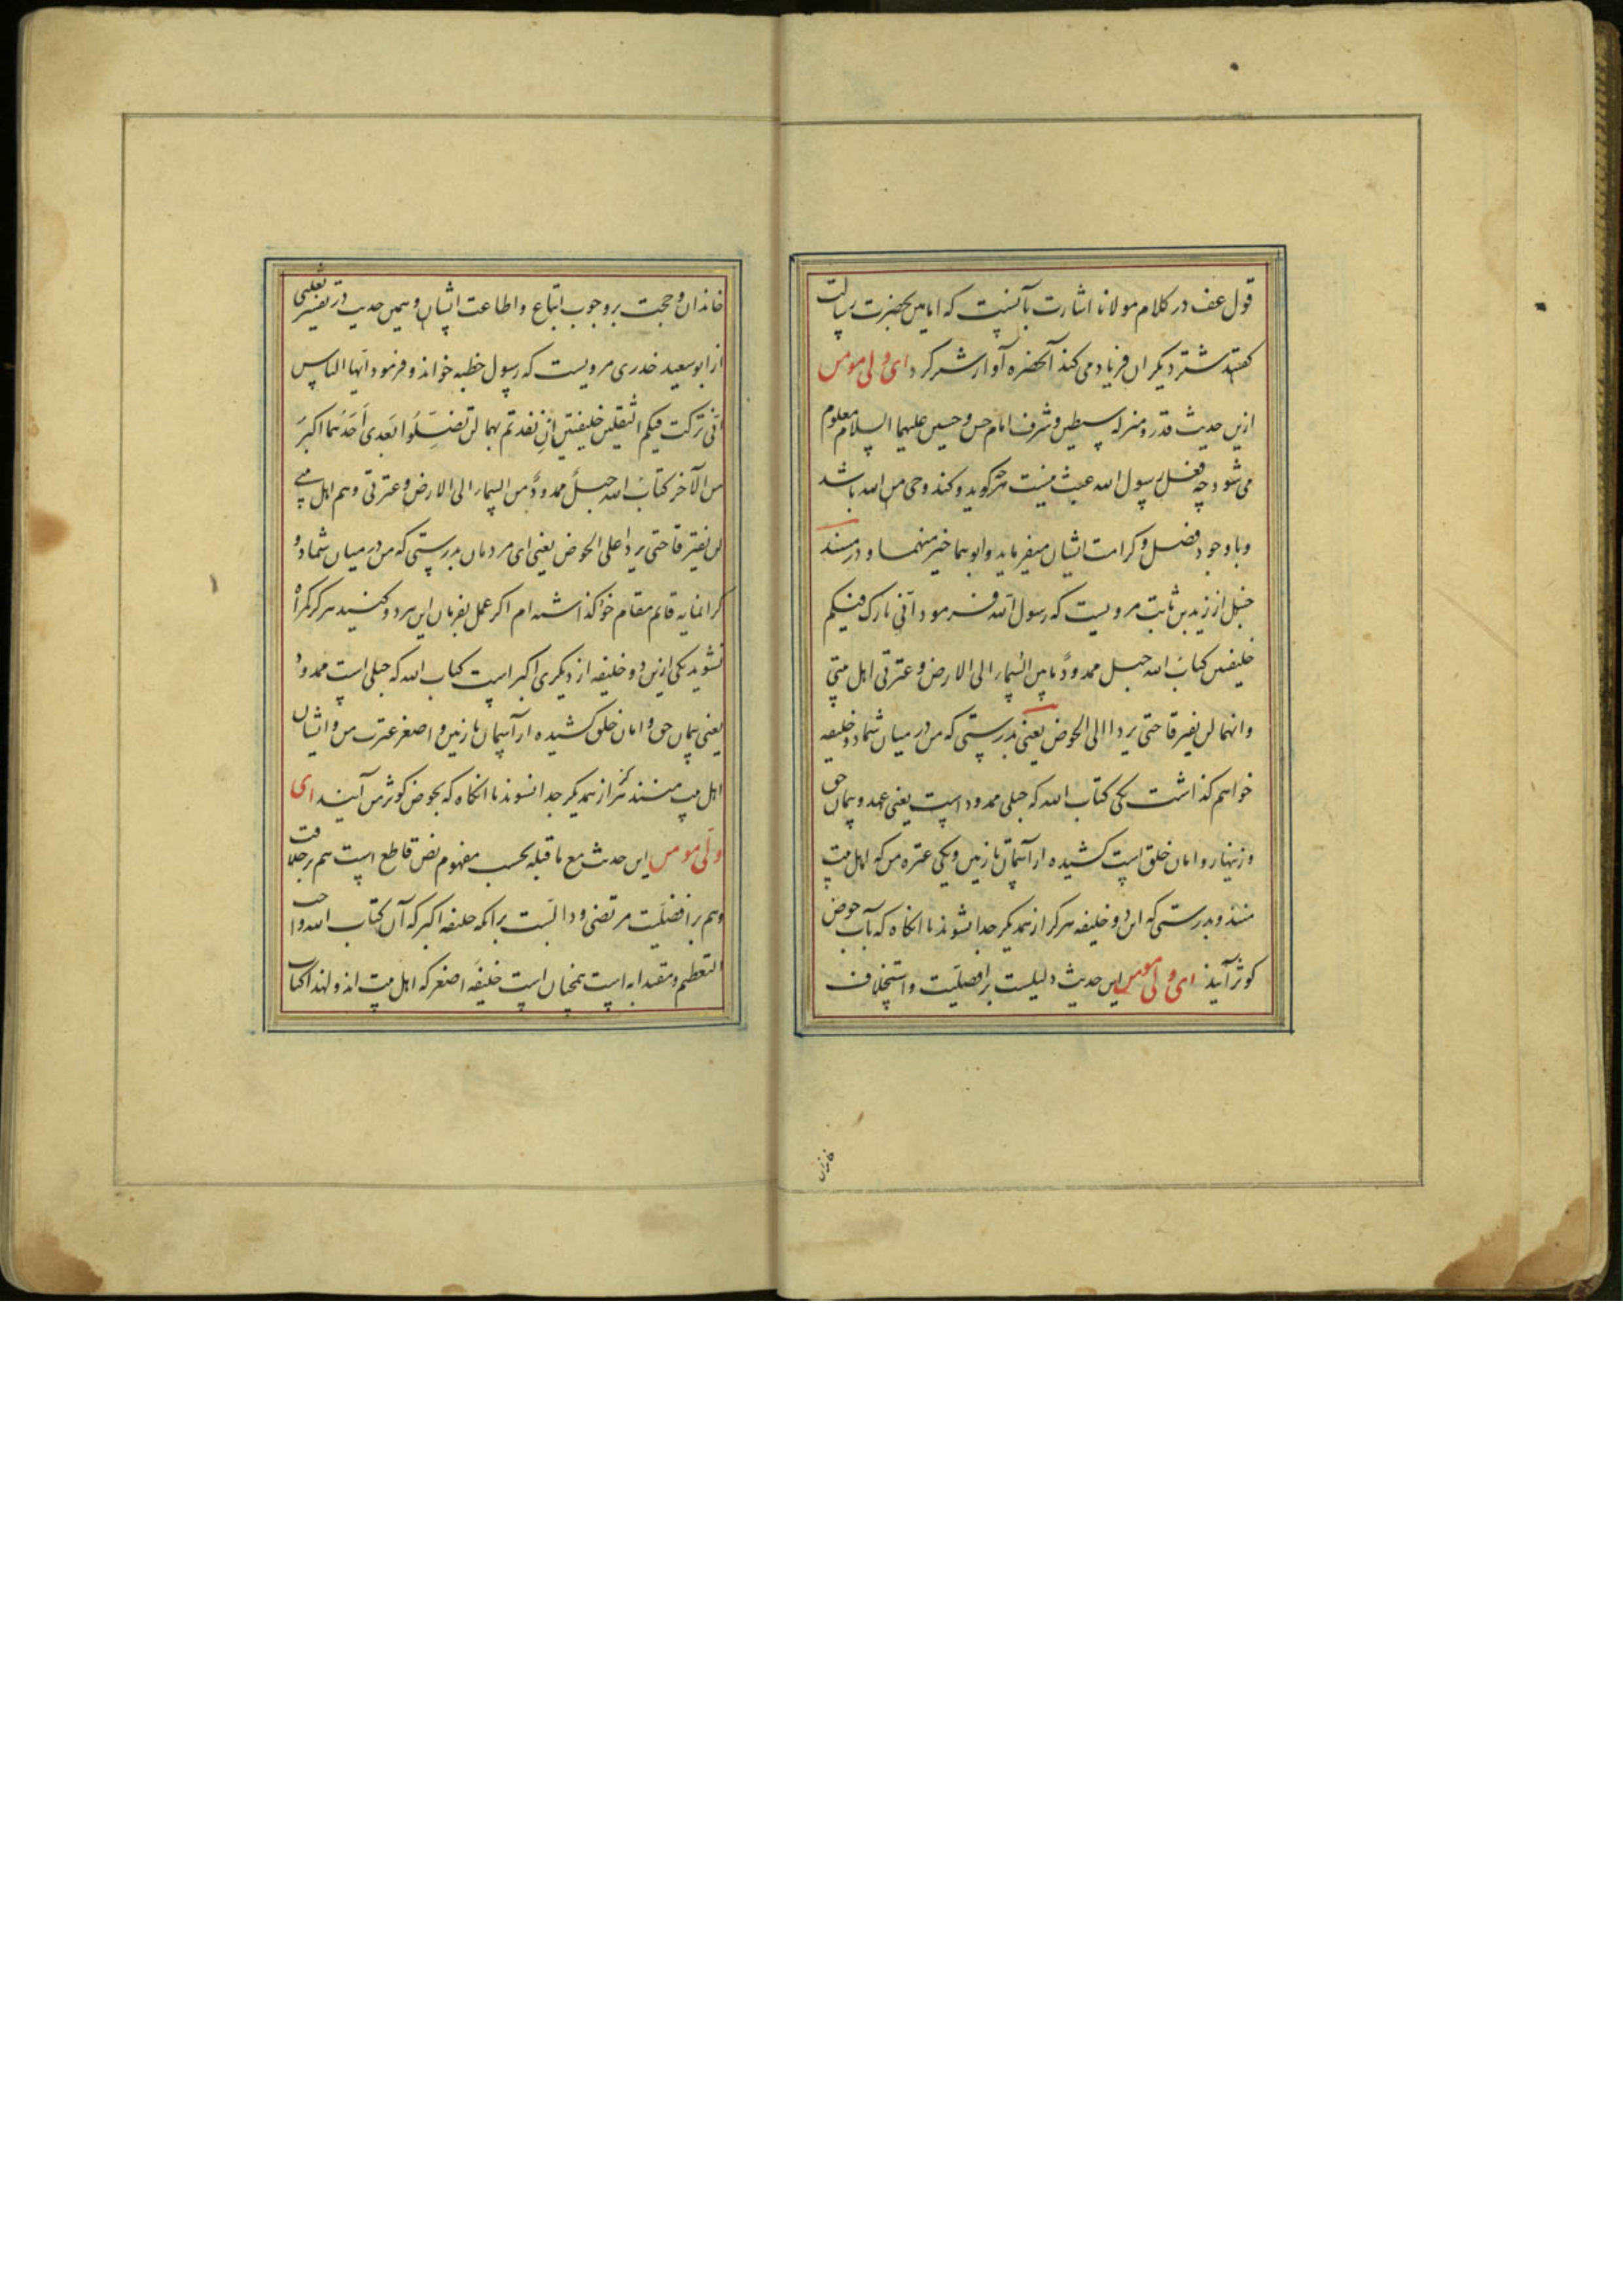 قول عف در کلام مولانا اشارت بآنست که امامین بحضرت رسالت
گفتند شتر دیگران فریاد می کند آنحضره آواز شتر کرد ای ولی مومن
ازین حدیث قدر و منزله سبطین و شرف امام حسن و حسین علیهما السلام معلوم
می شود چه فعل رسول الله عبث نیست هرچه کوید و کند وحی من الله باشد
و باوجود فضل و کرامت ایشان میفرماید و ابوهما خیر منهما و در مسند
حنبل از زید بن ثابت مرویست که رسول الله فرمود انی تارک فیکم
خلیفتین کتاب الله حبل ممدود ما بین السماء الی الارض و عترتی اهل بیتی
وانهما لن یفترقا حتی یردا الی الحوض یعنی بدرستی که من در میان شما دو خلیفه
خواهم کذاشت یکی کتاب الله که حبلی ممدود است یعنی عهد و پیمان حق
و زینهار و امان خلق است کشیده از آسمان تا زمین و یکی عتره من که اهل بیت
منند و بدرستی که این دو خلیفه هرکز از همدیکر جدا نشوند تا انکاه که بآب حوض
کوثر آیند ای ولی مومن این حدیث دلیلست بر افضلیت و استخلاف
خاندان
خاندان و حجت بر وجوب اتباع و اطاعت ایشان و همین حدیث در تفسیر ثعلبی
از ابو سعید خدری مرویست که رسول خطبه خواند و فرمود ایها الناس
انی ترکت فیکم الثقلین خلیفتین ان اخذتم بهما لن تضلوا بعدی احدهما اکبر
من الآخر کتاب الله حبل ممدود من السماء الی الارض و عترتی وهم اهل بیتی
لن یفترقا حتی یردا علی الحوض یعنی ای مردمان بدرستی که من در میان شما دو
کرانمایه قایم مقام خود کذاشته ام اکر عمل بفرمان این هر دو کنید هرکز کمراه
نشوید یکی ازین دو خلیفه از دیکری اکبر است کتاب الله که حبلی است ممدود
یعنی پیمان حق و امان خلق کشیده از آسمان تا زمین و اصغر عترت من و ایشان
اهل بیت منند هرکز از همدیکر جدا نشوند تا انکاه که بحوض کوثر من آیند ای
ولی مومن این حدیث مع ما قبله بحسب مفهوم نص قاطع است هم بر خلافت
وهم بر افضلیت مرتضی و دالست برانکه خلیفه اکبر که آن کتاب الله واجب
التعظیم و مقتدابه است همچنان است خلیفه اصغر که اهل بیت اند و لهذا اکتاب